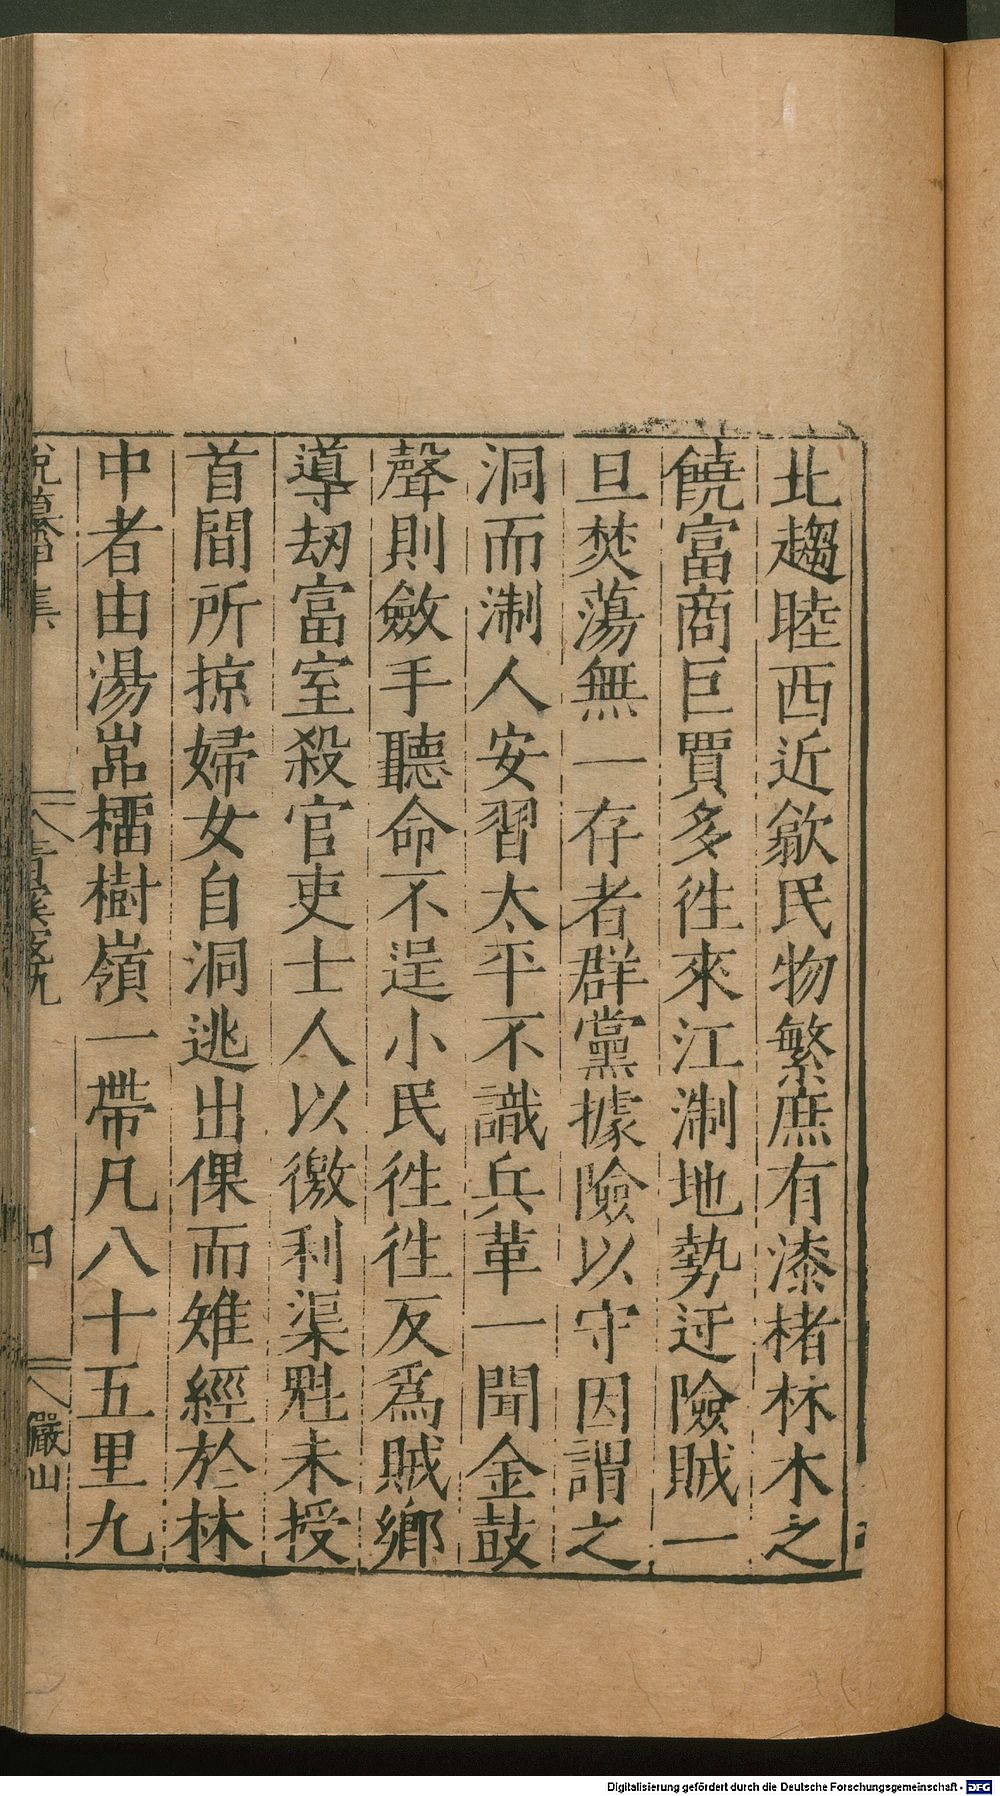 北趨睦西近歙民物繁庶有漆楮林木之
饒富商巨賈多徃來江淛地勢迂險賊一
旦焚蕩無一存者群黨據險以守因謂之
洞而淛人安習太平不識兵革一聞金鼓
聲則斂手聽命不逞小民徃徃反爲賊鄉
導刼富室殺官吏士人以徼利渠魁未授
首間所掠婦女自洞逃出倮而雉經於林
中者由湯嵓櫺樹嶺一帶凡八十五里九
說纂甲集
青溪寇軌
四
儼山
Digitalisierung gefördert durch die Deutsche Forschungsgemeinschaft - DFG